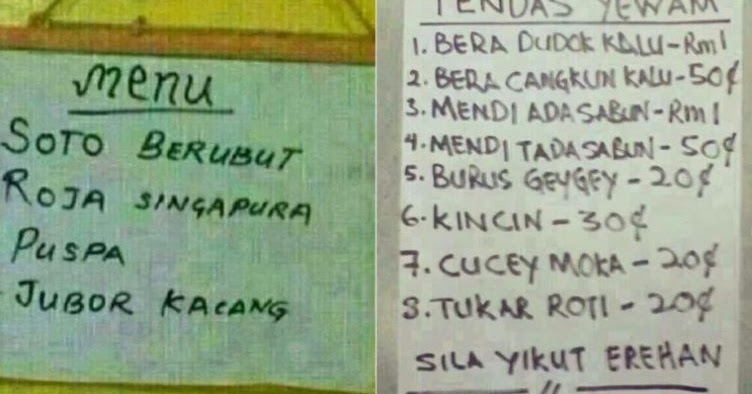 menu
SOTO BERUBUT
ROJA SINGAPURA
PUSPA
JUBOR KACANG
TENDAS YEWAM
1. BERA DUDOK KALU - RM1
2. BERA CANGKUN KALU - 50¢
3. MENDI ADA SABUN - RM1
4. MENDI TADA SABUN - 50¢
5. BURUS GEYGEY - 20¢
6. KINCIN - 30¢
7. CUCEY MOKA - 20¢
8. TUKAR ROTI - 20¢
SILA YIKUT EREHAN